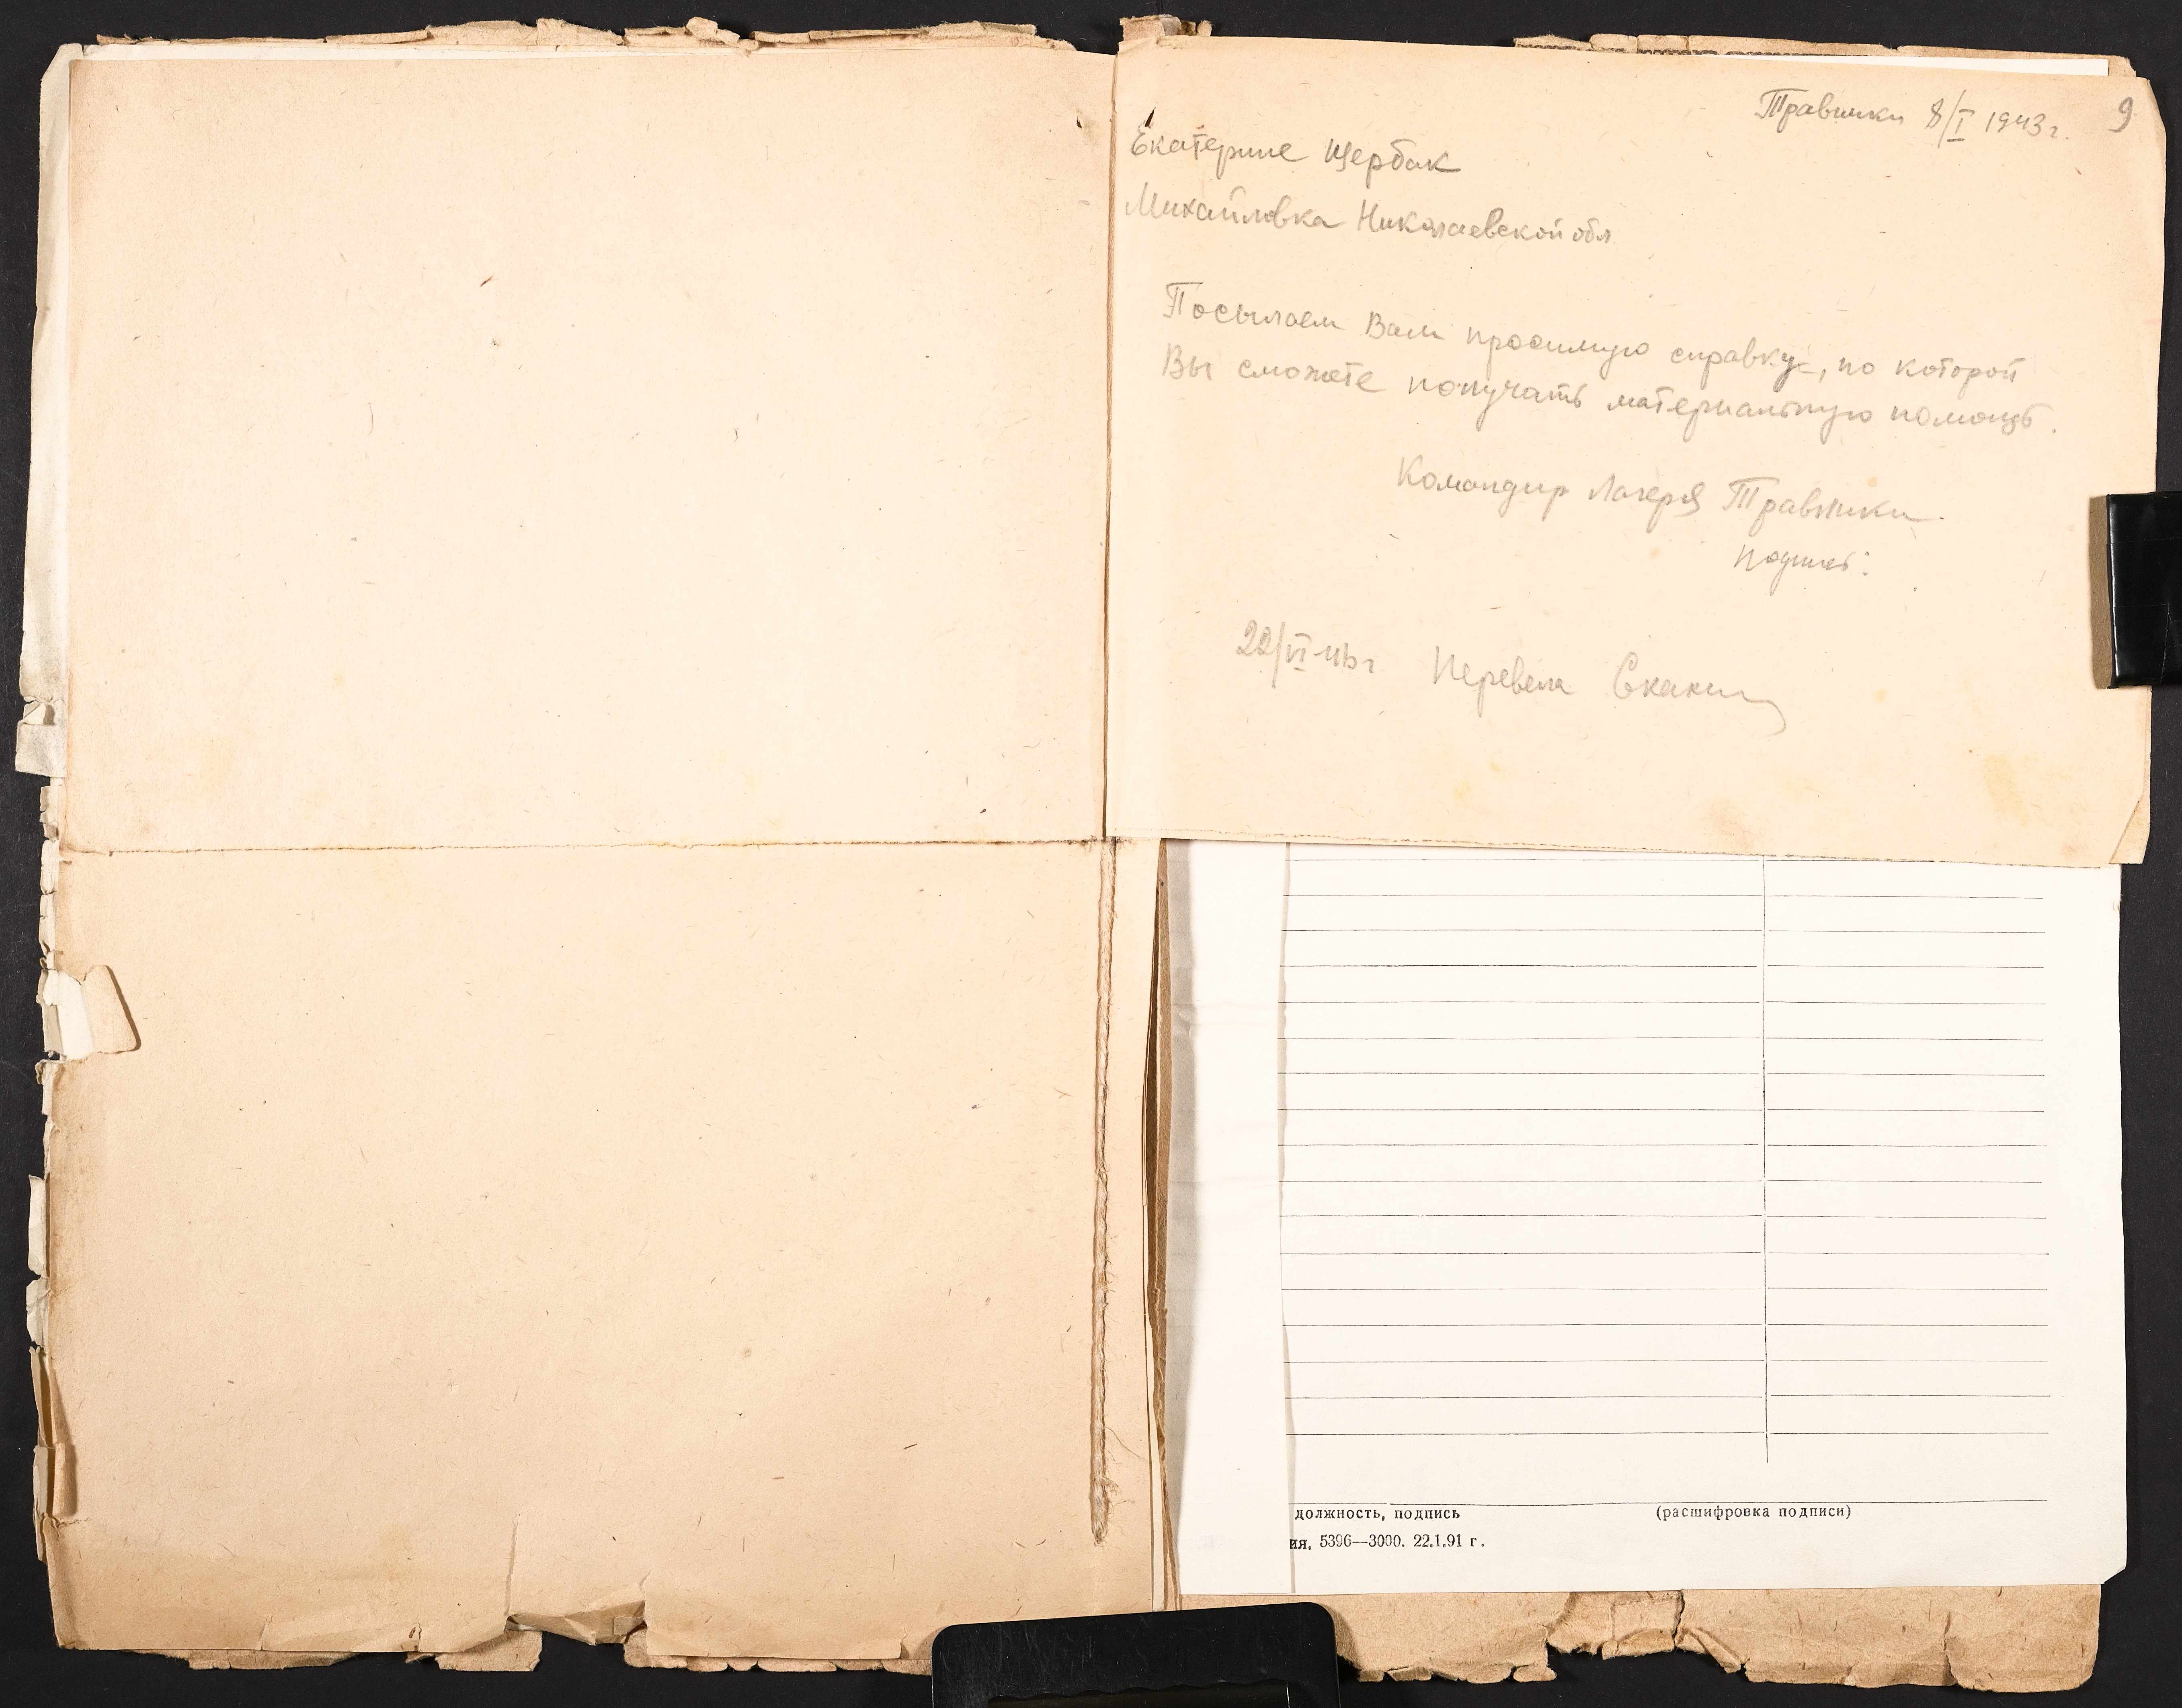 Травники 8/I 1943 г. 9
Екатерине Щербак
Михайловка Николаевской обл
Посылаем Вам просимую справку, по которой
Вы сможете получать материальную помощь.
Командир Лагеря Травники.
подпись:
22/VI-46 г Перевела
должность, подпись (расшифровка подписи)
ия. 5396—3000. 22.1.91 г.